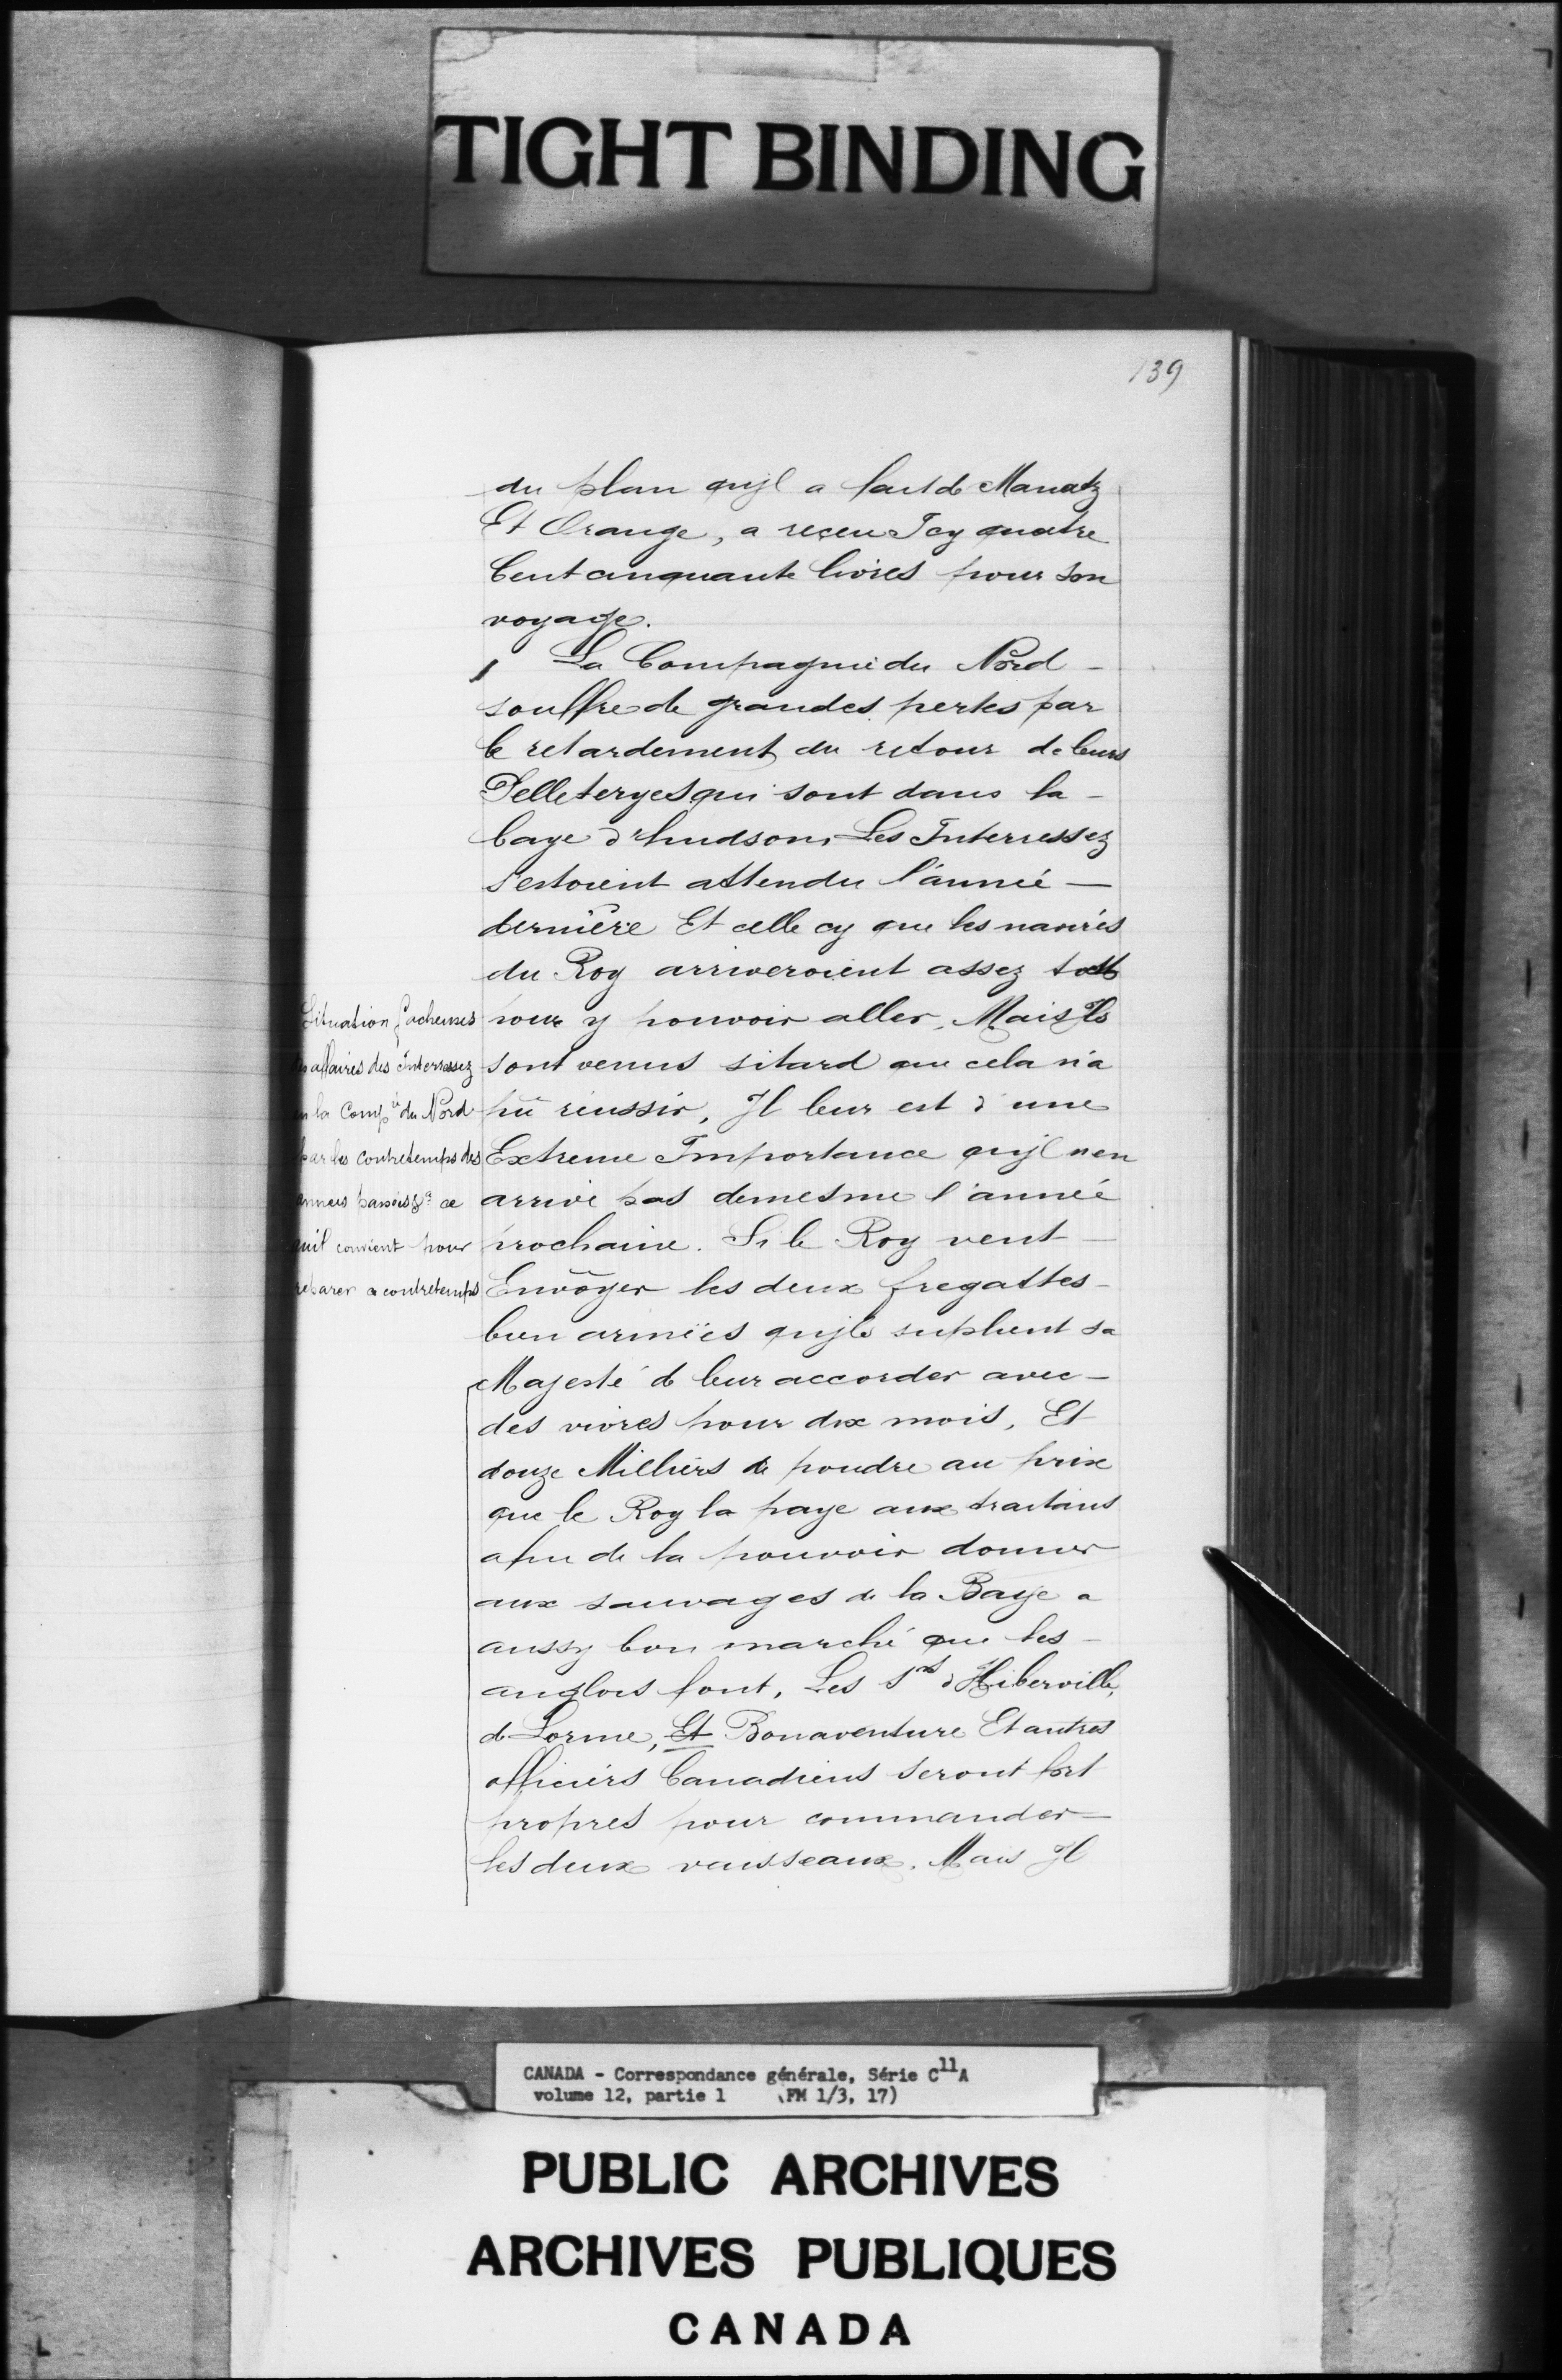 TIGHT BINDING
139
du plan qujl a fait de Manatz
Et Orange, a reçeu Icy quatre
Cent cinquante livres pour son
voyage.
La Compagnie du Nord -
souffre de grandes pertes par
le retardement du retour de leurs
Pelleteryes qui sont dans la -
baye d'hudson, Les Interressez
s'estoient attendu l'année -
derniere Et celle cy que les navires
du Roy arriveroient assez tost
pour y pouvoir aller, Mais Ils
sont venus sitard que cela n'a
pû reussir, Jl leur est d'une
Extreme Importance qujl n'en
arrive pas demesme l'année
prochaine. Si le Roy veut -
Envöyer les deux fregattes -
bien armées qujls suplient sa
Majesté de leur accorder avec -
des vivres pour dix mois, Et
douze Milliers de poudre au prix
que le Roy la paye aux traitans
afin de la pouvoir donner
aux sauvages de la Baye a
aussy bon marché que les -
anglois font, Les Srs d'Hiberville,
de Lorme, Et Bonaventure Et autres
officiers Canadiens seront fort
propres pour commander -
les deux vaisseaux. Mais Jl
Situation facheuses
des affaires des Interressez
en la Compie du Nord
par les contretemps des
années passées & ce
quil convient pour
reparer ce contretemps
CANADA - Correspondance générale, Série C11A
volume 12, partie 1 (FM 1/3, 17)
PUBLIC ARCHIVES
ARCHIVES PUBLIQUES
CANADA